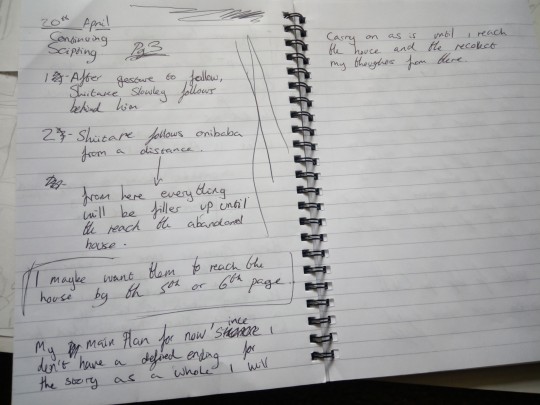 20th April
Continuing
Scripting Pg 3
1 - After gesture to follow,
Shitare Slowley follows
behind him
2 - Shitare follows onibaba
from a distance.
from here everything
will be filler up until
the reach the abandoned
house.
I maybe want them to reach the
house by th 5th or 6th page
My main Plan for now since I
don't have a defined ending for
the story as a whole I will
Carry on as is until i reach
the house and the recolect
my thoughts from there.